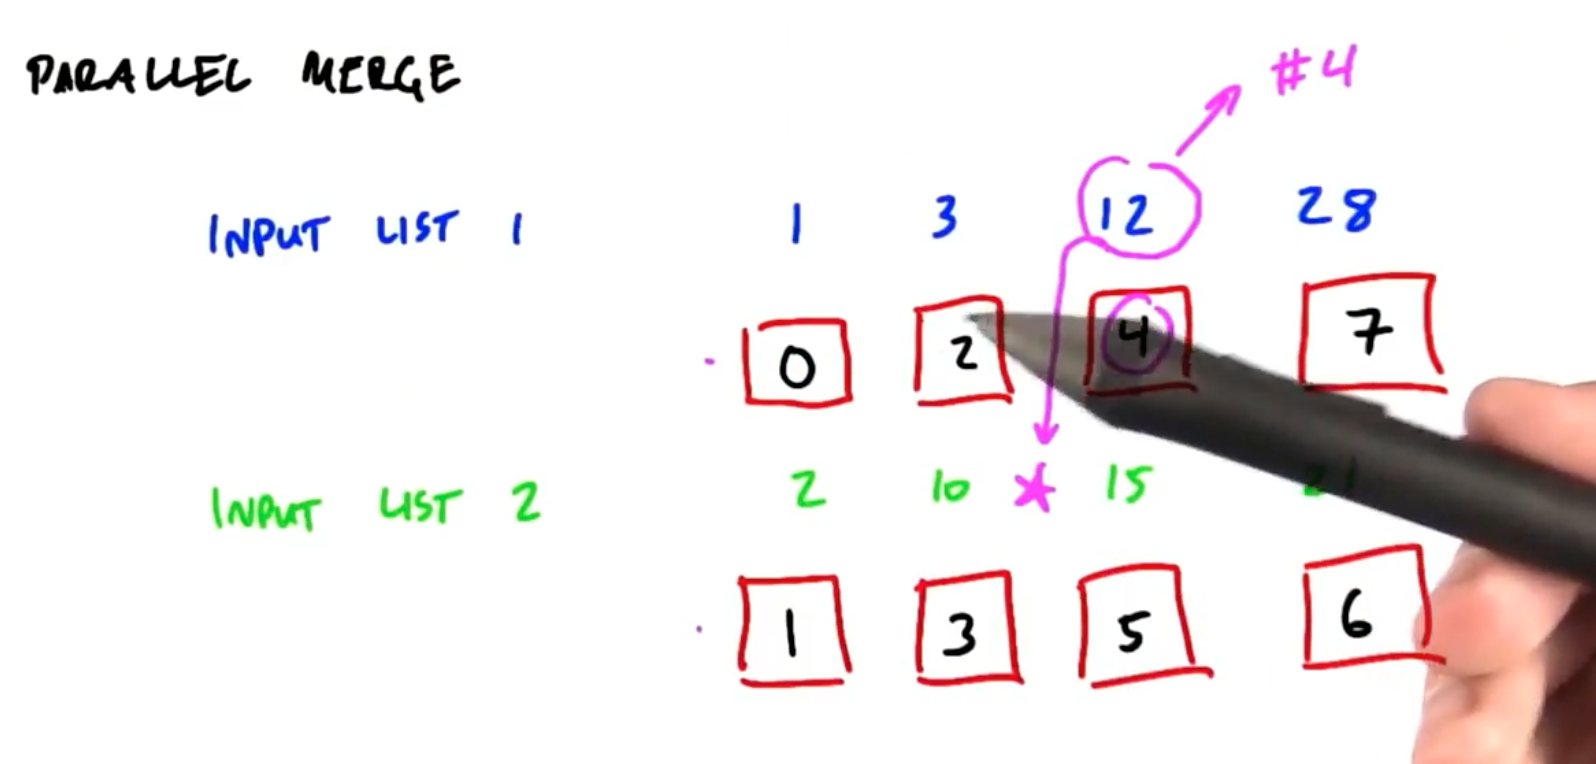 PARALLEL MERGE
#4
INPUT LIST 1 1 3 12 28
0 2 4 7
INPUT LIST 2 2 10 15 21
1 3 5 6